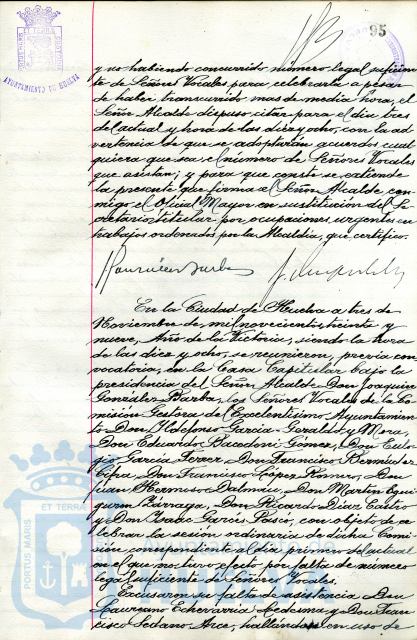 95
AYUNTAMIENTO DE HUELVA
y no habiendo concurrido número legal suficien-
te de Señores Vocales para celebrarla a pesar
de haber transcurrido mas de media hora, el
Señor Alcalde dispuso citar para el dia tres
del actual y hora de las diez y ocho, con la ad-
vertencia de que se adoptarán acuerdos cual-
quiera que sea el número de Señores Vocales
que asistan; y para que conste se extiende
la presente que firma el Señor Alcalde con-
migo el Oficial Mayor en sustitución del Se-
cretario titular por ocupaciones urgentes en
trabajos ordenados por la Alcaldia, que certifico.
En la Ciudad de Huelva a tres de
Noviembre de mil novecientos treinta y
nueve, Año de la Victoria, siendo la hora
de las diez y ocho, se reunieron, previa con-
vocatoria, en la Casa Capitular bajo la
presidencia del Señor Alcalde Don Joaquin
González Barba, los Señores Vocales de la Co-
misión Gestora del Excelentisimo Ayuntamien-
to Don Ildefonso Garcia-Geraldo y Mora,
Don Eduardo Gómez, Don
Garcia Ferrer, Don Francisco Bermúdez
Don Francisco López Romero, Don
Juan Hermoso Dalmau, Don Martin
Párraga, Don Ricardo Diaz Castro
y Don Isaac Garces Pasco, con objeto de ce-
lebrar la sesión ordinaria de dicha Comi-
sión correspondiente al dia primero del actual
en el que no tuvo efecto por falta de número
legal suficiente de Señores Vocales.
Excusaron su falta de asistencia Don
Laureano Echevarria Ledesma y Don Fran-
cisco Sedano Arce, hallándose en uso de
PORTUS MARIS ET TERRÆ